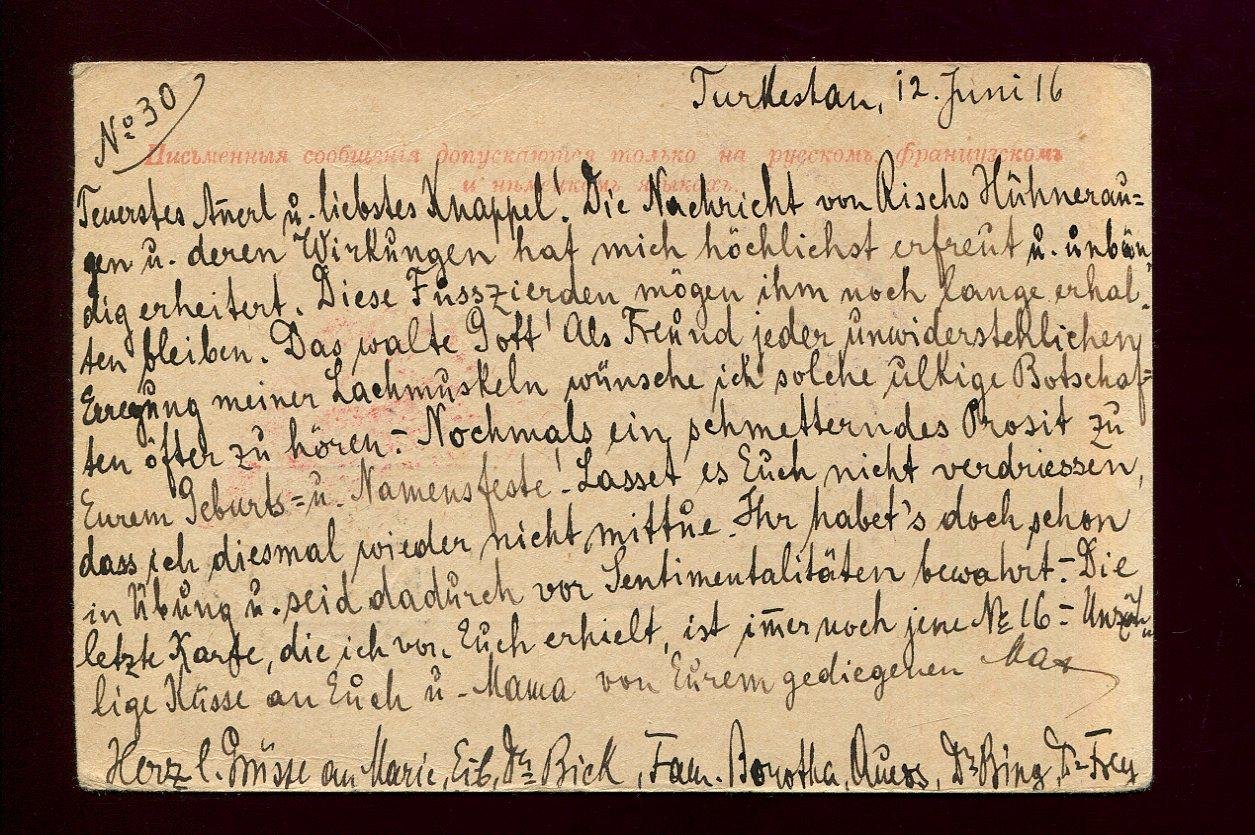 Nº 30
Turkestan, 12. Juni 16
Письменныя сообщенія допускаются только на русскомъ, французскомъ
и нѣмецкомъ языкахъ.
Teuerstes Annerl u. liebstes Knappel! Die Nachricht von Rischs Hühnerau=
gen u. deren Wirkungen hat mich höchlichst erfreut u. unbän
dig erheitert. Diese Fusszierden mögen ihm noch lange erhal-
ten bleiben. Das walte Gott! Als Freund jeder unwiderstehlichen
Erregung meiner Lachmuskeln wünsche ich solche ulkige Botschaf=
ten öfter zu hören.- Nochmals ein schmetterndes Prosit zu
Eurem Geburts=u. Namensfeste! Lasset es Euch nicht verdriessen,
dass ich diesmal wieder nicht mittue. Ihr habet's doch schon
in Übung u. seid dadurch vor Sentimentalitäten bewahrt.- Die
letzte Karte, die ich von Euch erhielt, ist im̅er noch jene № 16.- Unzäh-
lige Küsse an Euch u. Mama von Eurem gediegenen Max
Herzl. Grüsse an Marie, Dr Bick, Fam. Borotha, Dr Bing, Dr Frey